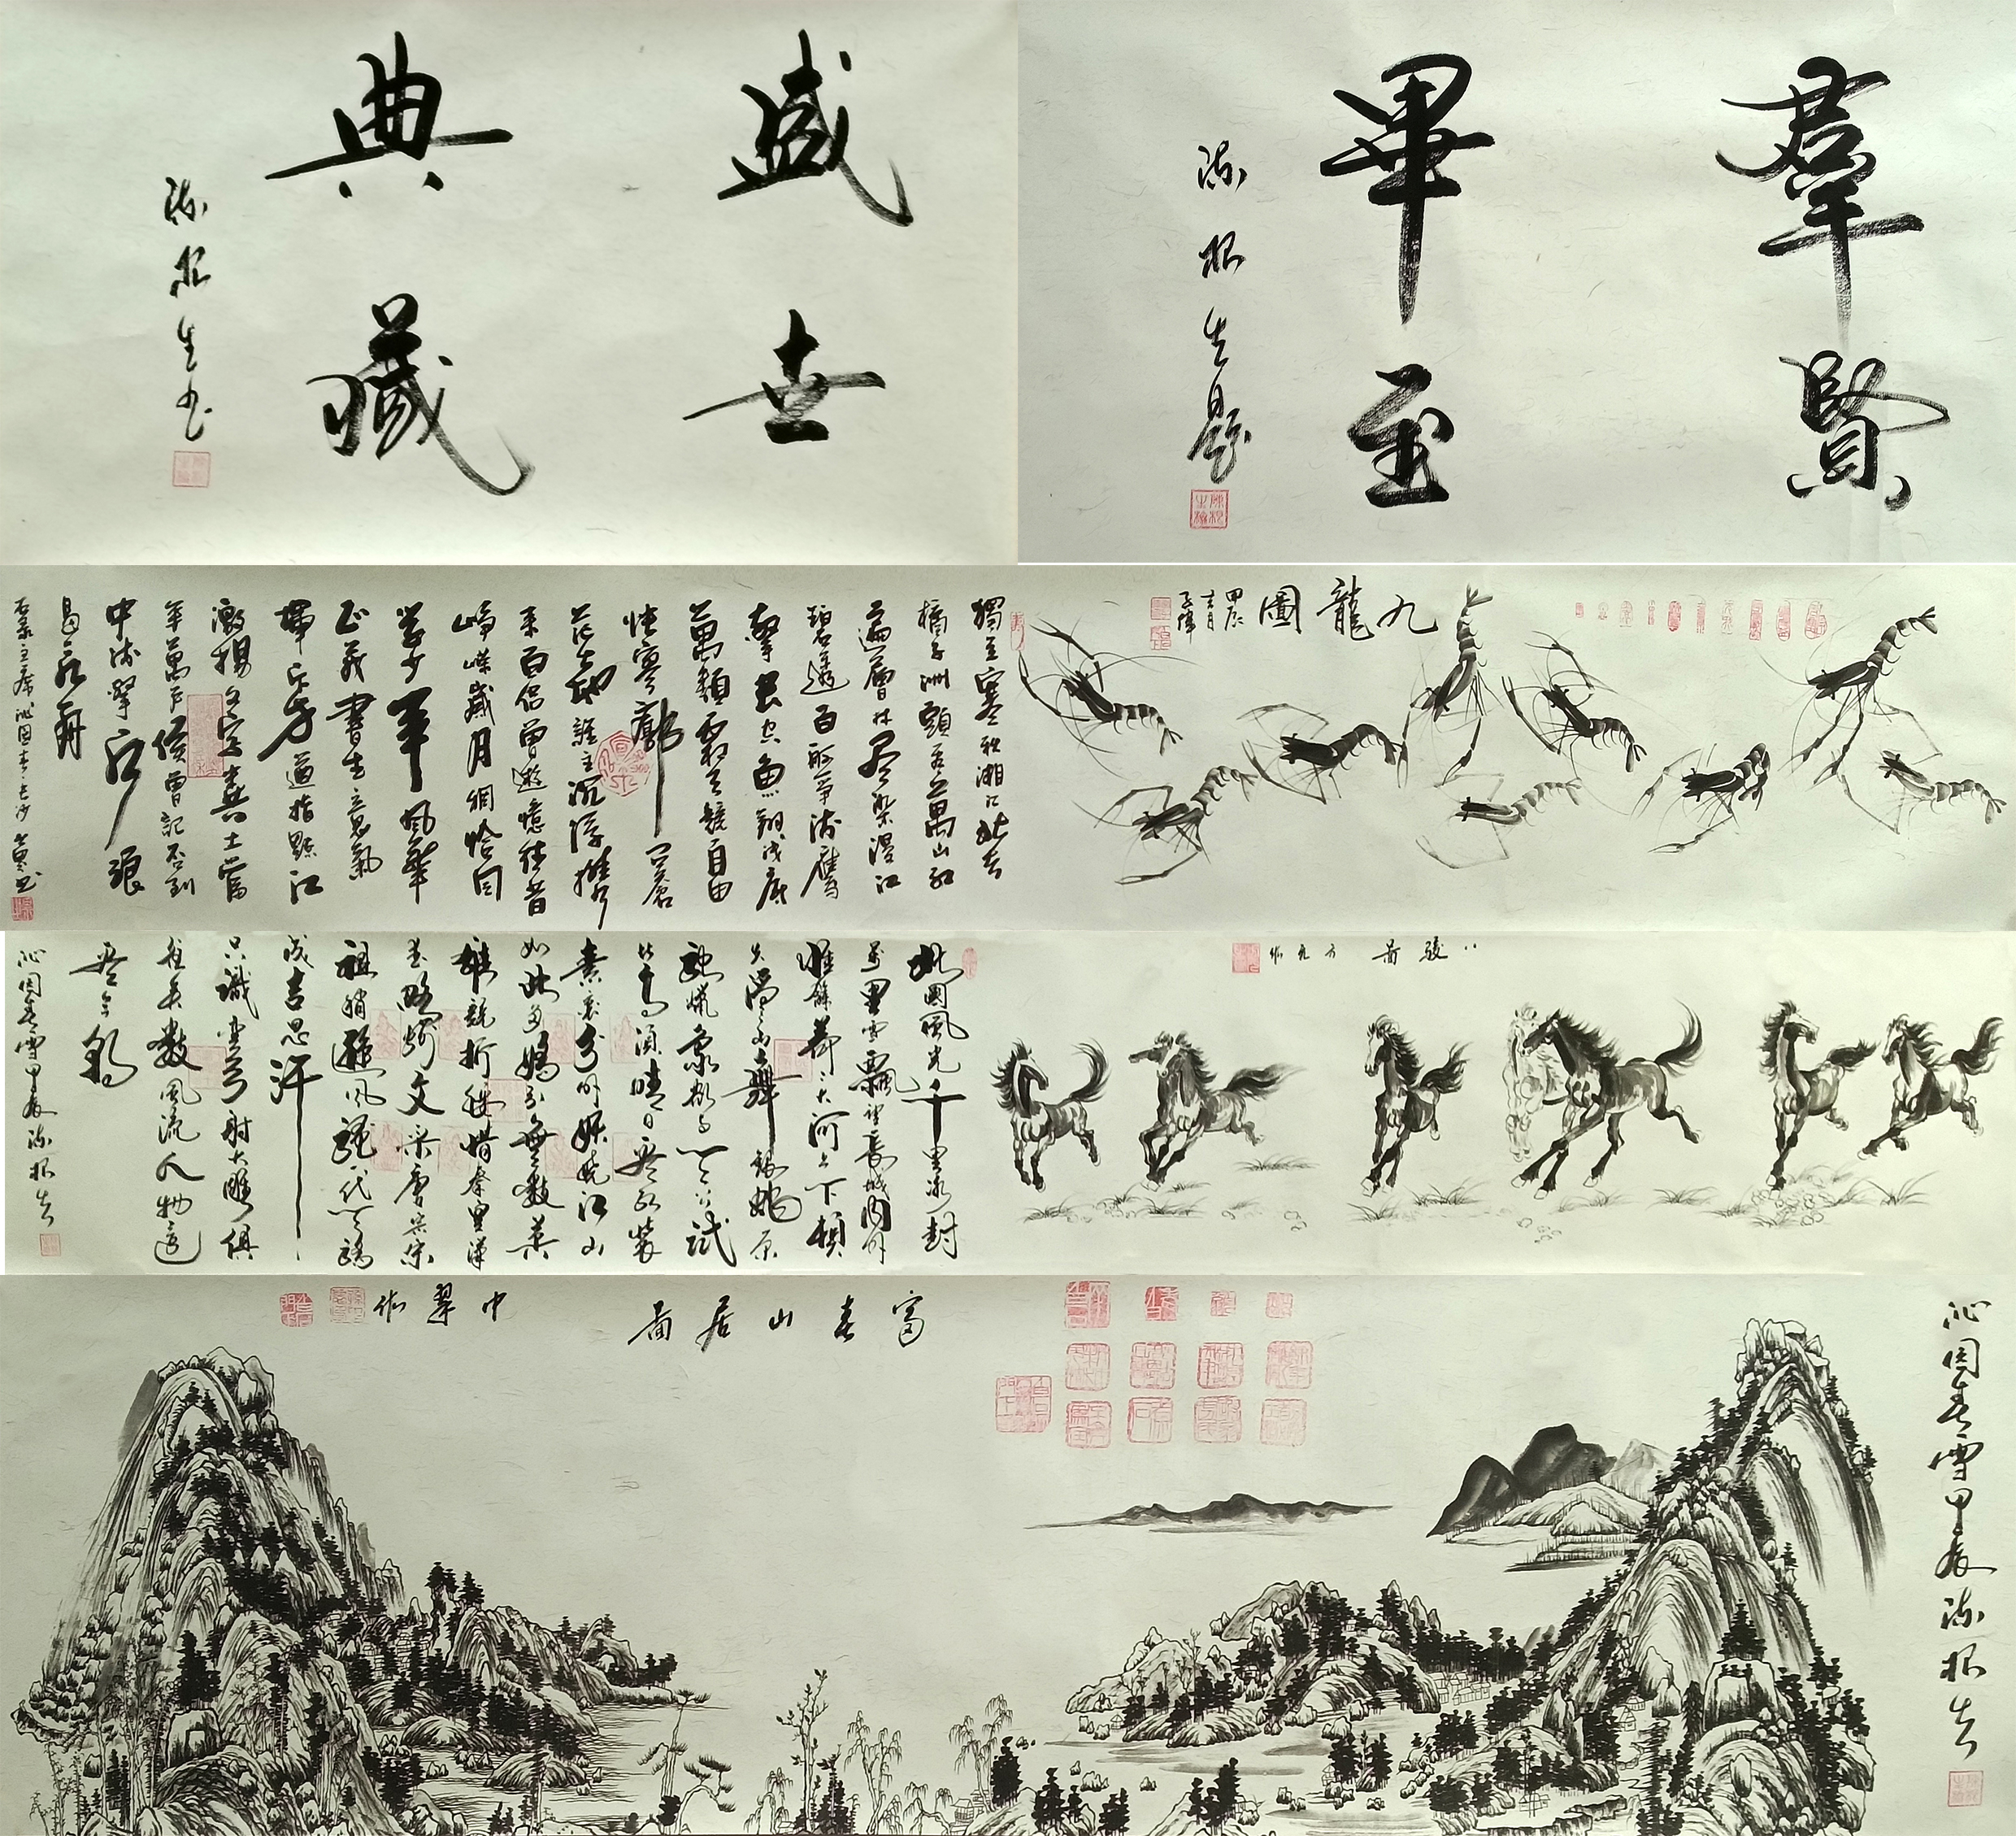 羣賢
畢至
陈根生题
盛世
典藏
陈根生书
九龍圖
甲辰
獨立寒秋湘江北去
橘子洲頭看萬山红
遍層林尽染漫江
碧透百舸爭流鹰
擊長空魚翔浅底
萬類霜天競自由
怅寥廓问蒼
茫大地誰主沉浮携
来百侣曾遊憶往昔
崢嶸歲月稠恰同
學少年風華
正茂書生意氣
揮斥方遒指點江
激揚文字糞土當
年萬户侯曾記否到
中流擊水浪
遏飛舟
主席沁园春长沙
八骏图
方九作
北國風光千里冰封
萬里雪飄望長城内外
惟餘莽莽大河上下頓
失滔滔山舞銀蛇原
馳蠟象欲与天公試
比高須晴日看红装
素裹分外妖娆江山
如此多嬌引無數英
雄競折腰惜秦皇漢
武略输文采唐宗宋
祖稍遜风骚一代天骄
成吉思汗
只識弯弓射大雕俱
往矣數風流人物還
看今朝
沁园春雪甲辰陈根生
沁园春雪甲辰陈根生
富春山居图
中翠作